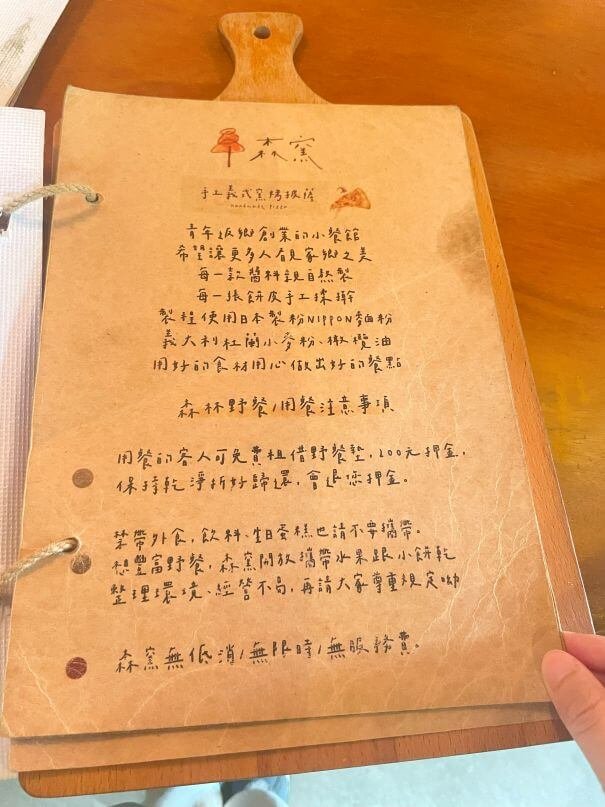 森窯
手工義式窯烤披薩
handmade pizza
青年返鄉創業的小餐館
希望讓更多人看見家鄉之美
每一款醬料親自熬製
每一張餅皮手工揉擀
製程使用日本製粉NIPPON麵粉
義大利杜蘭小麥粉、橄欖油
用好的食材用心做出好的餐點
森林野餐/用餐注意事項
用餐的客人可免費租借野餐墊,200元押金,
保持乾淨折好歸還,會退您押金。
禁帶外食,飲料、生日蛋糕也請不要攜帶。
想豐富野餐,森窯開放攜帶水果跟小餅乾
整理環境、經營不易,再請大家尊重規定呦
森窯無低消/無限時/無服務費。